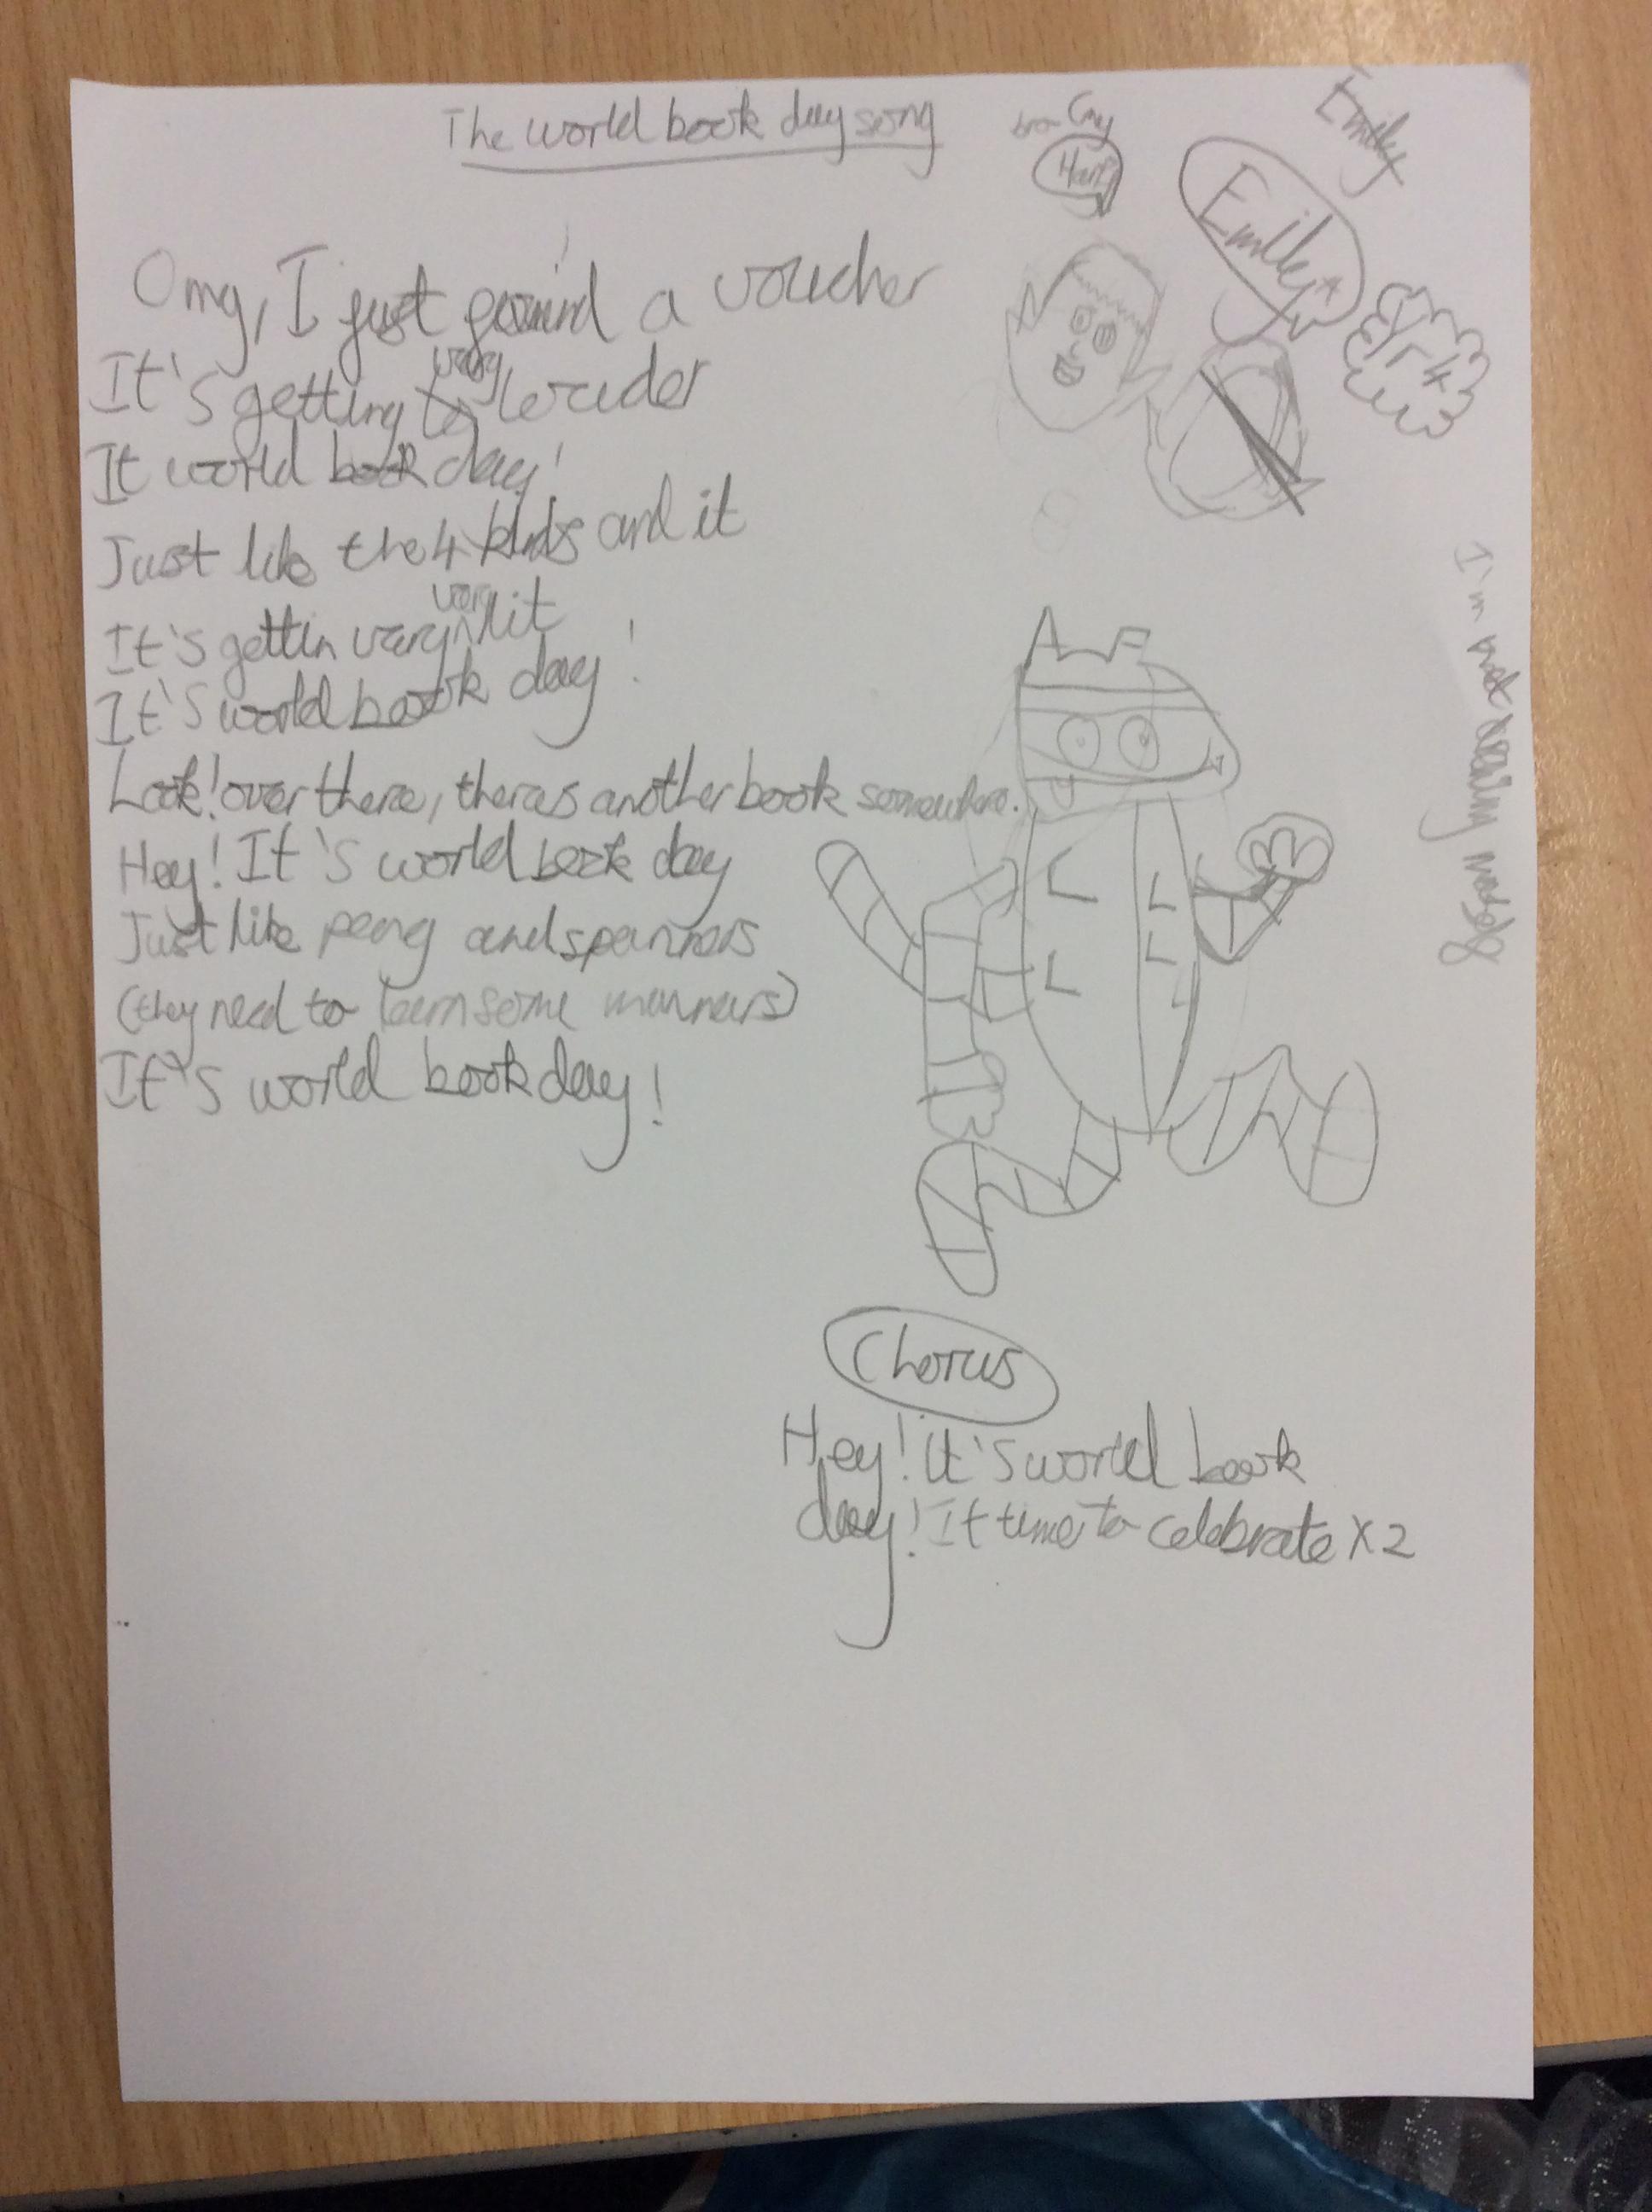 The world book day song
Emily
Emily
Yr 4
Omg, I just found a voucher
It's getting very louder
It world book day!
Just like the 4 kids and it
It's gettin very very lit
It's world book day!
Look! over there, theres another book somewhere.
Hey! It's world book day
Just like peng and spanners
(they need to learn some manners)
It's world book day!
I'm not
Chorus
Hey! it's world book
day! It time to celebrate x2